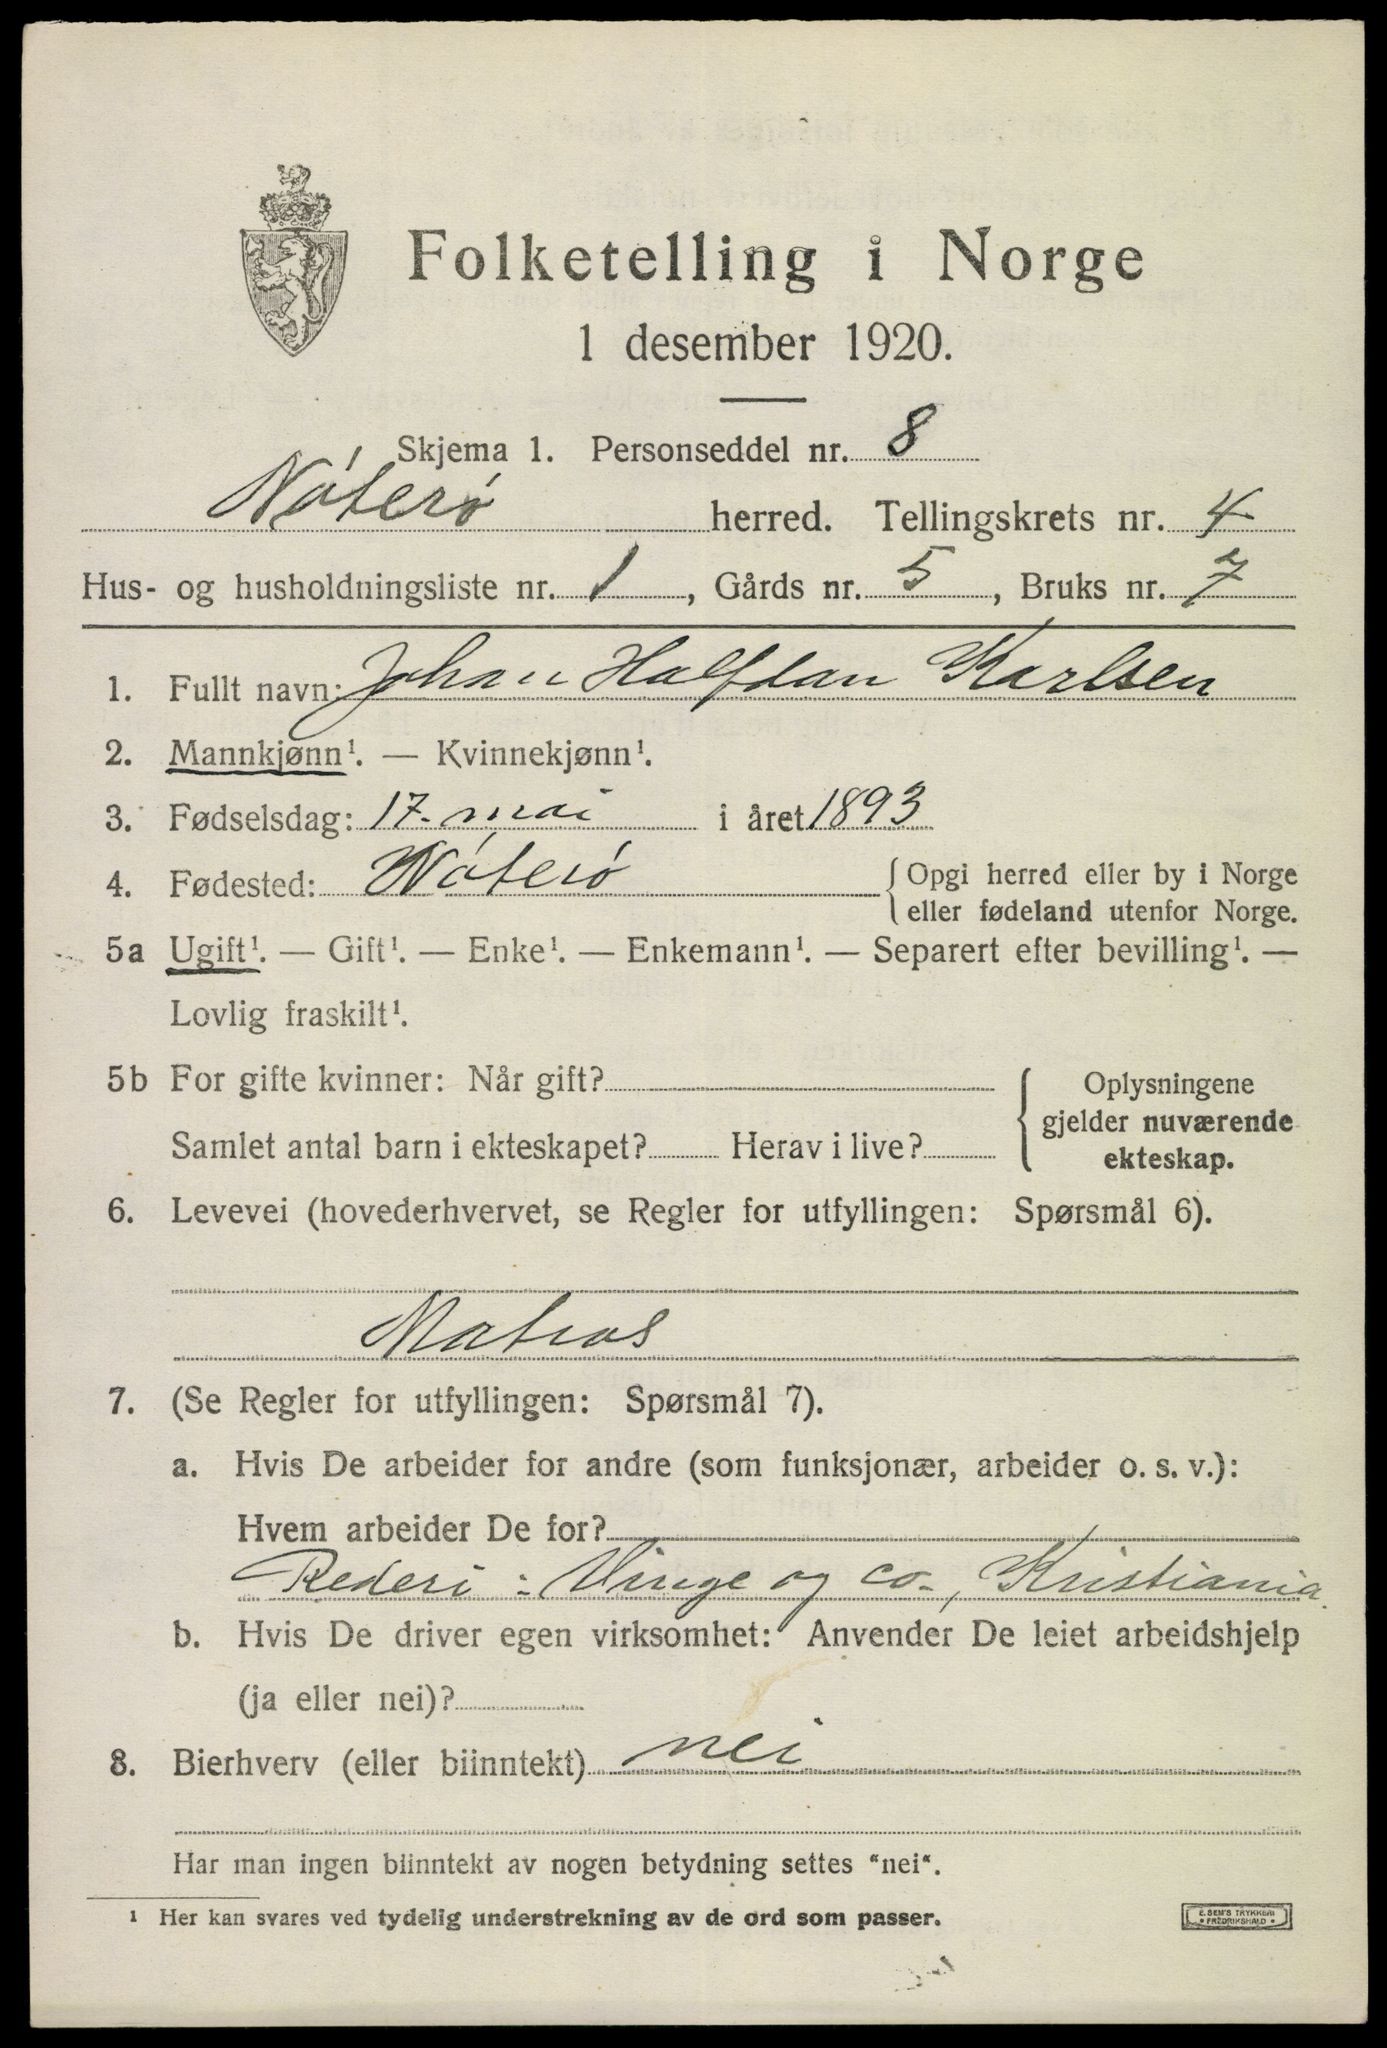 Folketelling i Norge
1 desember 1920.
Skjema 1. Personseddel nr. 8
Nóteró herred. Tellingskrets nr. 4
Hus- og husholdningsliste nr. 1, Gårds nr. 5, Bruks nr. 7
1. Fullt navn: Johan Halfdan Karlsen
2. Mannkjønn¹. — Kvinnekjønn¹.
3. Fødselsdag: 17. mai i året 1893
4. Fødested: Nóteró { Opgi herred eller by i Norge
eller fødeland utenfor Norge.
5a Ugift¹. — Gift¹. — Enke¹. — Enkemann¹. — Separert efter bevilling¹. —
Lovlig fraskilt¹.
5b For gifte kvinner: Når gift?
Samlet antal barn i ekteskapet? Herav i live?
{ Oplysningene
gjelder nuværende
ekteskap.
6. Levevei (hovederhvervet, se Regler for utfyllingen: Spørsmål 6).
Matros
7. (Se Regler for utfyllingen: Spørsmål 7).
a. Hvis De arbeider for andre (som funksjonær, arbeider o. s. v.):
Hvem arbeider De for?
Rederi: Vinge og co., Kristiania.
b. Hvis De driver egen virksomhet: Anvender De leiet arbeidshjelp
(ja eller nei)?
8. Bierhverv (eller biinntekt) nei
Har man ingen biinntekt av nogen betydning settes "nei".
¹ Her kan svares ved tydelig understrekning av de ord som passer.
E. SEM'S TRYKKERI
• FREDRIKSHALD •